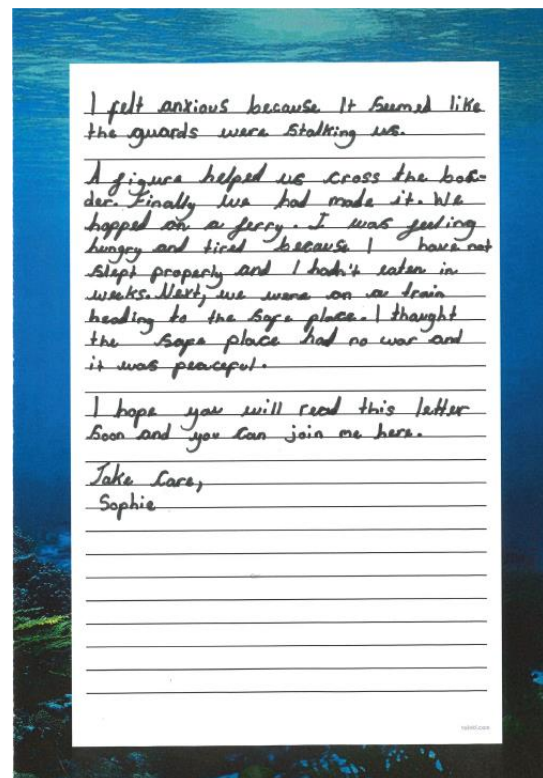 I felt anxious because It seemed like
the guards were stalking us.
A figure helped us cross the bor-
der. Finally we had made it. We
hopped on a ferry. I was feeling
hungry and tired because I have not
slept properly and I hadn't eaten in
weeks. Next, we were on a train
heading to the safe place. I thought
the safe place had no war and
it was peaceful.
I hope you will read this letter
soon and you can join me here.
Take Care,
Sophie